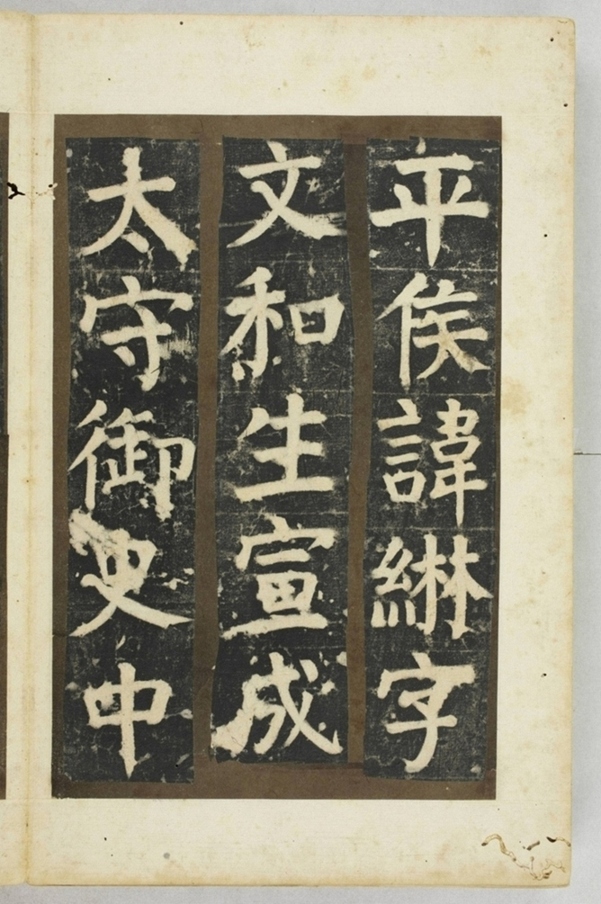 平侯諱綝字
文和生宣成
太守御史中